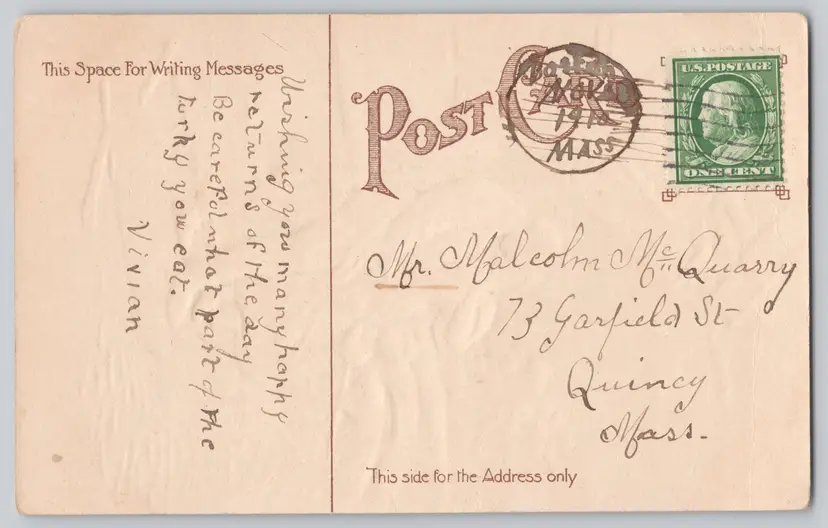 This Space For Writing Messages
Wishing you many happy
returns of the day
Be carefor what part of the
turky you eat.
Vivian
POST CARD
Boston
NOV
191
MASS
U.S. POSTAGE
ONE CENT
Mr. Malcolm McQuarry
73 Garfield St
Quincy
Mass.
This side for the Address only